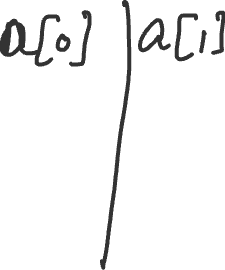 a[0] | a[1]